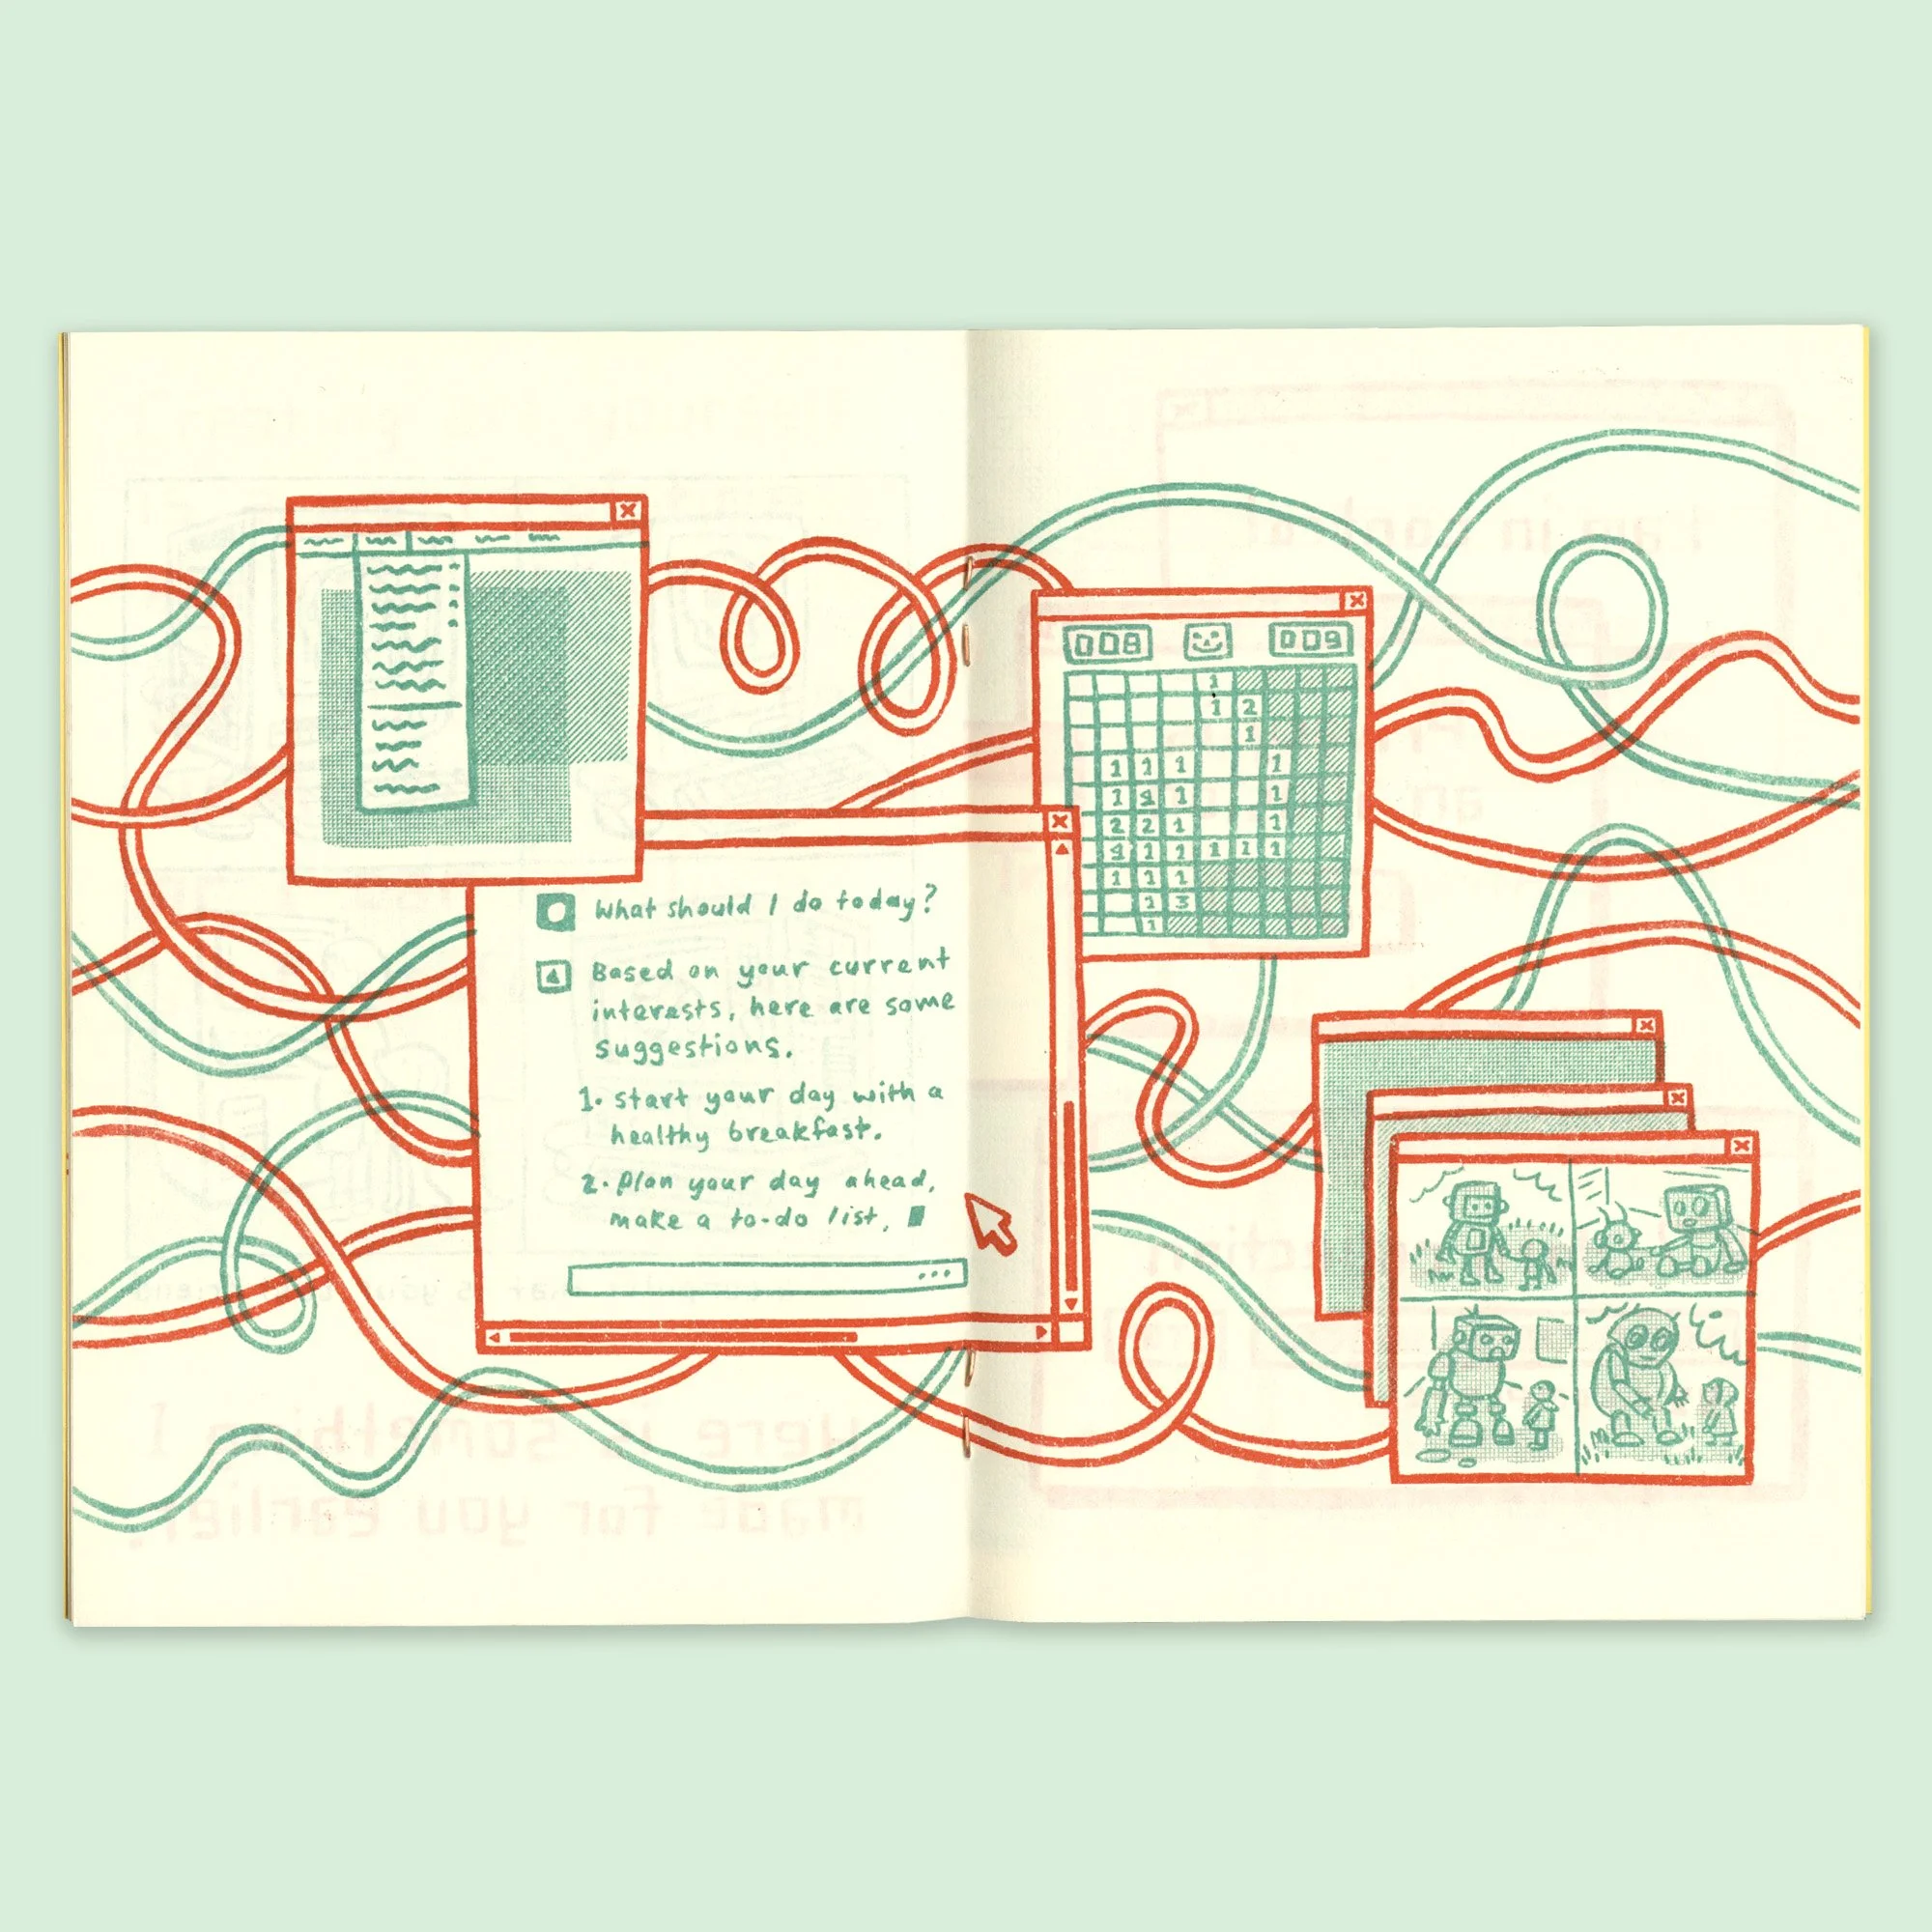 What should I do today?
Based on your current
interests, here are some
suggestions.
1. Start your day with a
healthy breakfast.
2. Plan your day ahead,
make a to-do list.
008 009
1
1 2
1
1 1 1 1
1 1 1 1
2 2 1 1
1 1 1 1 1 1
1 1 1
1 3
1